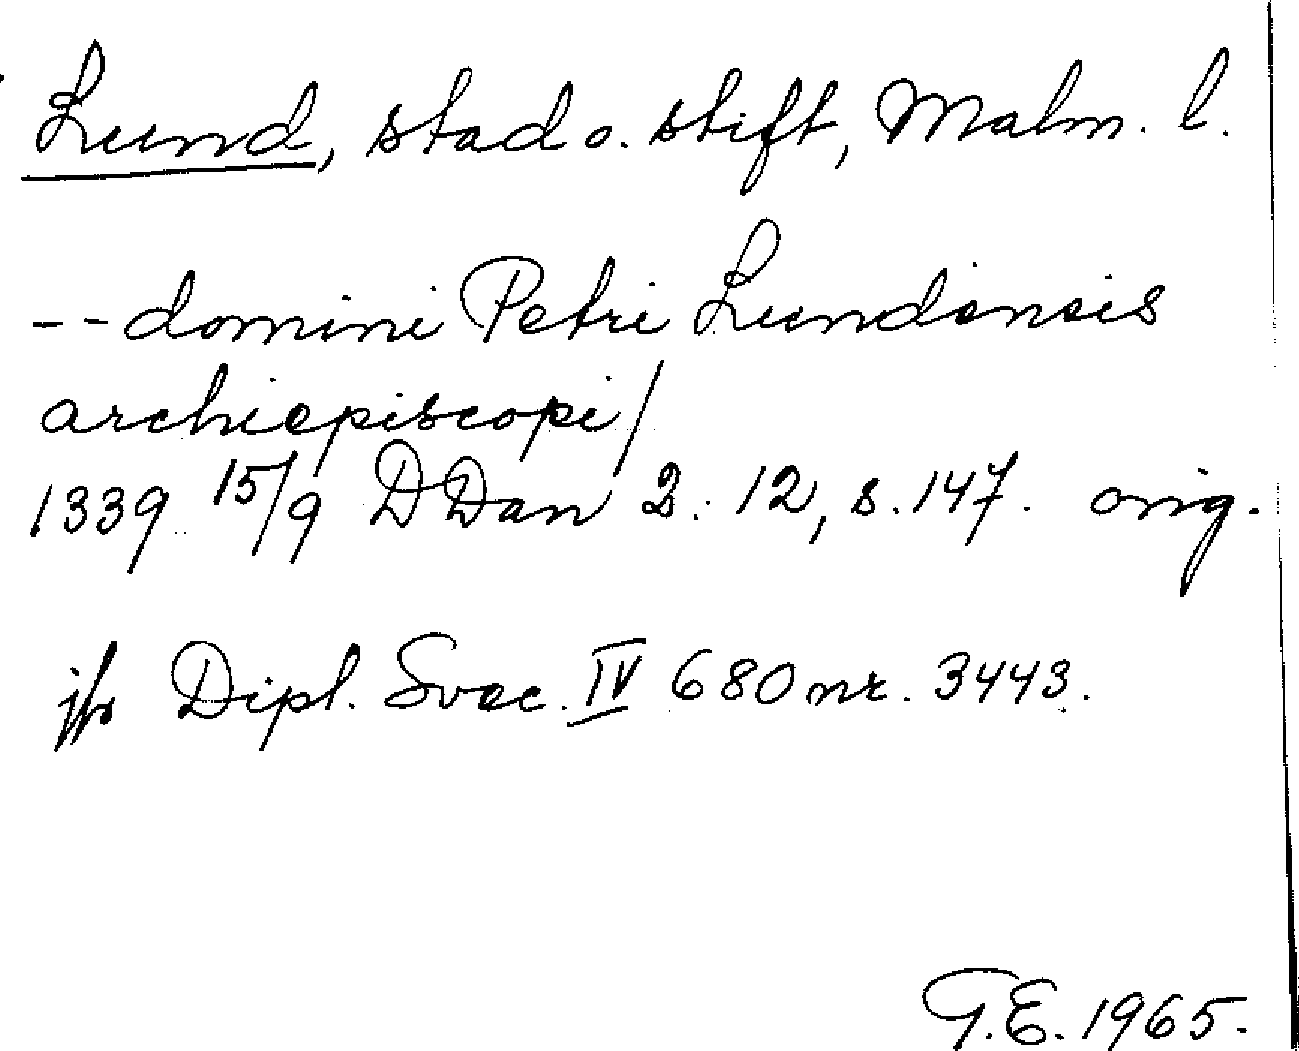 Lund, stad o. stift, Malm. l.
-- domini Petri Lundensis
archiepiscopi/
1339 15/9 DDan 2. 12, s. 147. orig.
jfr Dipl. Svec. IV 680 nr. 3443.
G.E. 1965.